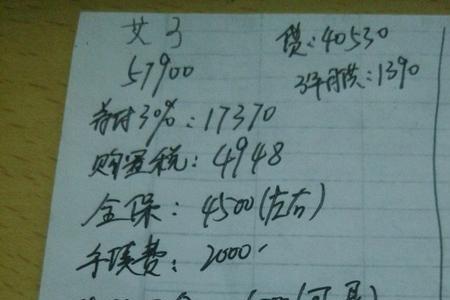 艾3 贷:40530
57900 3年月供:1390
首付30%:17370
购置税:4948
全保:4500(左右)
手续费:2000